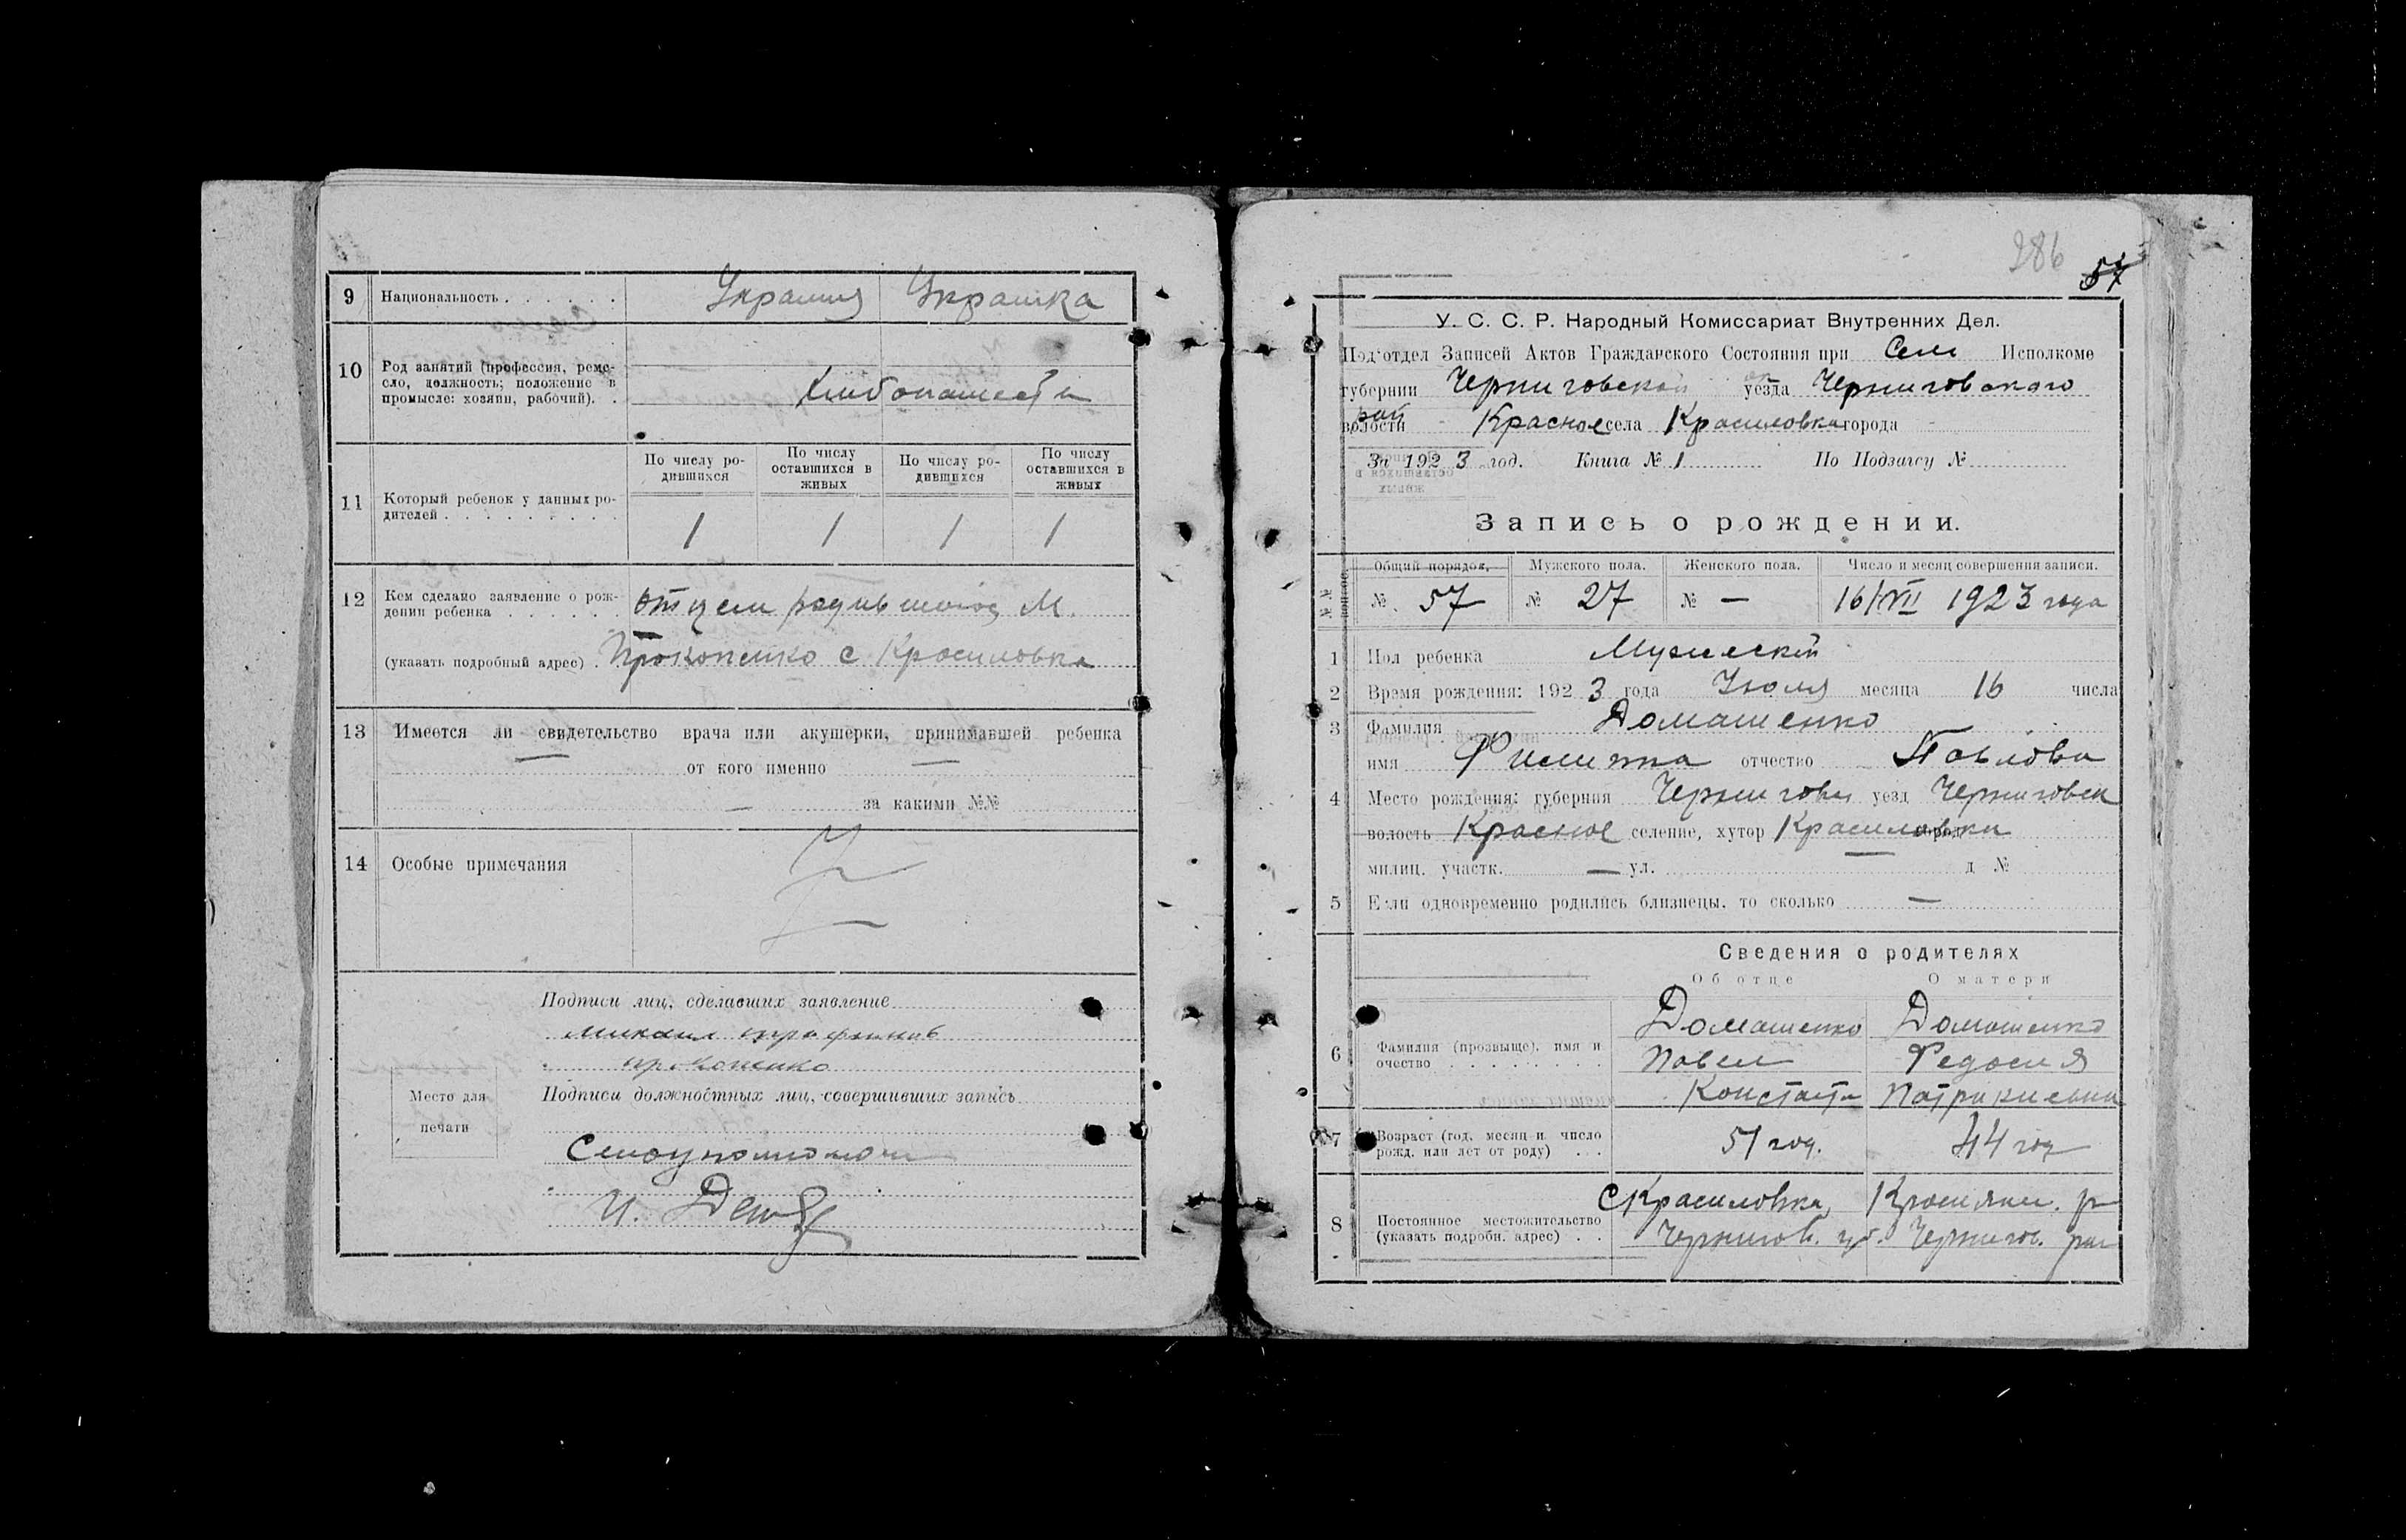 9 Национальность . . . . . . Украинц Украинка
10 Род занятий (профессия, реме-
сло, должность; положение в
промысле: хозяин, рабочий). .
Хлебопашест
11 Который ребенок у данных ро-
дителей . . . . . . . . .
По числу ро-
дившихся
По числу
оставшихся в
живых
По числу ро-
дившихся
По числу
оставшихся в
живых
1 1 1 1
12 Кем сделано заявление о рож-
дении ребенка . . . . . . отцем М.
(указать подробный адрес) . Прокопенко с Красиловка
13 Имеется ли свидетельство врача или акушерки, принимавшей ребенка
— от кого именно —
— за какими №№
14 Особые примечания
Подписи лиц, сделавших заявление
Михаил трофимов
прокопенко
Место для
печати
Подписи должностных лиц, совершивших запись
И.
286
57
У. С. С. Р. Народный Комиссариат Внутренних Дел.
Подотдел Записей Актов Гражданского Состояния при Сель Исполкоме
губернии Черниговской уезда Черниговского
рай
волости Красное села Красиловка города -
За 1923 год. Книга № 1 По Подзагсу №
Запись о рождении.
№№ Общий порядок. Мужского пола. Женского пола. Число и месяц совершения записи.
№ 57 № 27 № — 16/VII 1923 года
1 Пол ребенка Мужеский
2 Время рождения: 1923 года Июля месяца 16 числа
3 Фамилия Домашенко
имя Филипа отчество Павлова
4 Место рождения: губерния Чернигов уезд Черниговск
волость Красное селение, хутор Красиловка город
милиц. участк. — ул. — д №
5 Если одновременно родились близнецы, то сколько —
Сведения о родителях
Об отце О матери
6 Фамилия (прозвище), имя и
очество . . . . . . . .
Домашенко
Павел
Констати
Домашенко
Федосия
Патрикиевна
7 Возраст (год, месяц и число
рожд. или лет от роду) . . .
51 год. 44 год
8 Постоянное местожительство
(указать подробн. адрес) . .
С Красиловка, Краснян. р
Чернигов. губ. Чернигов.